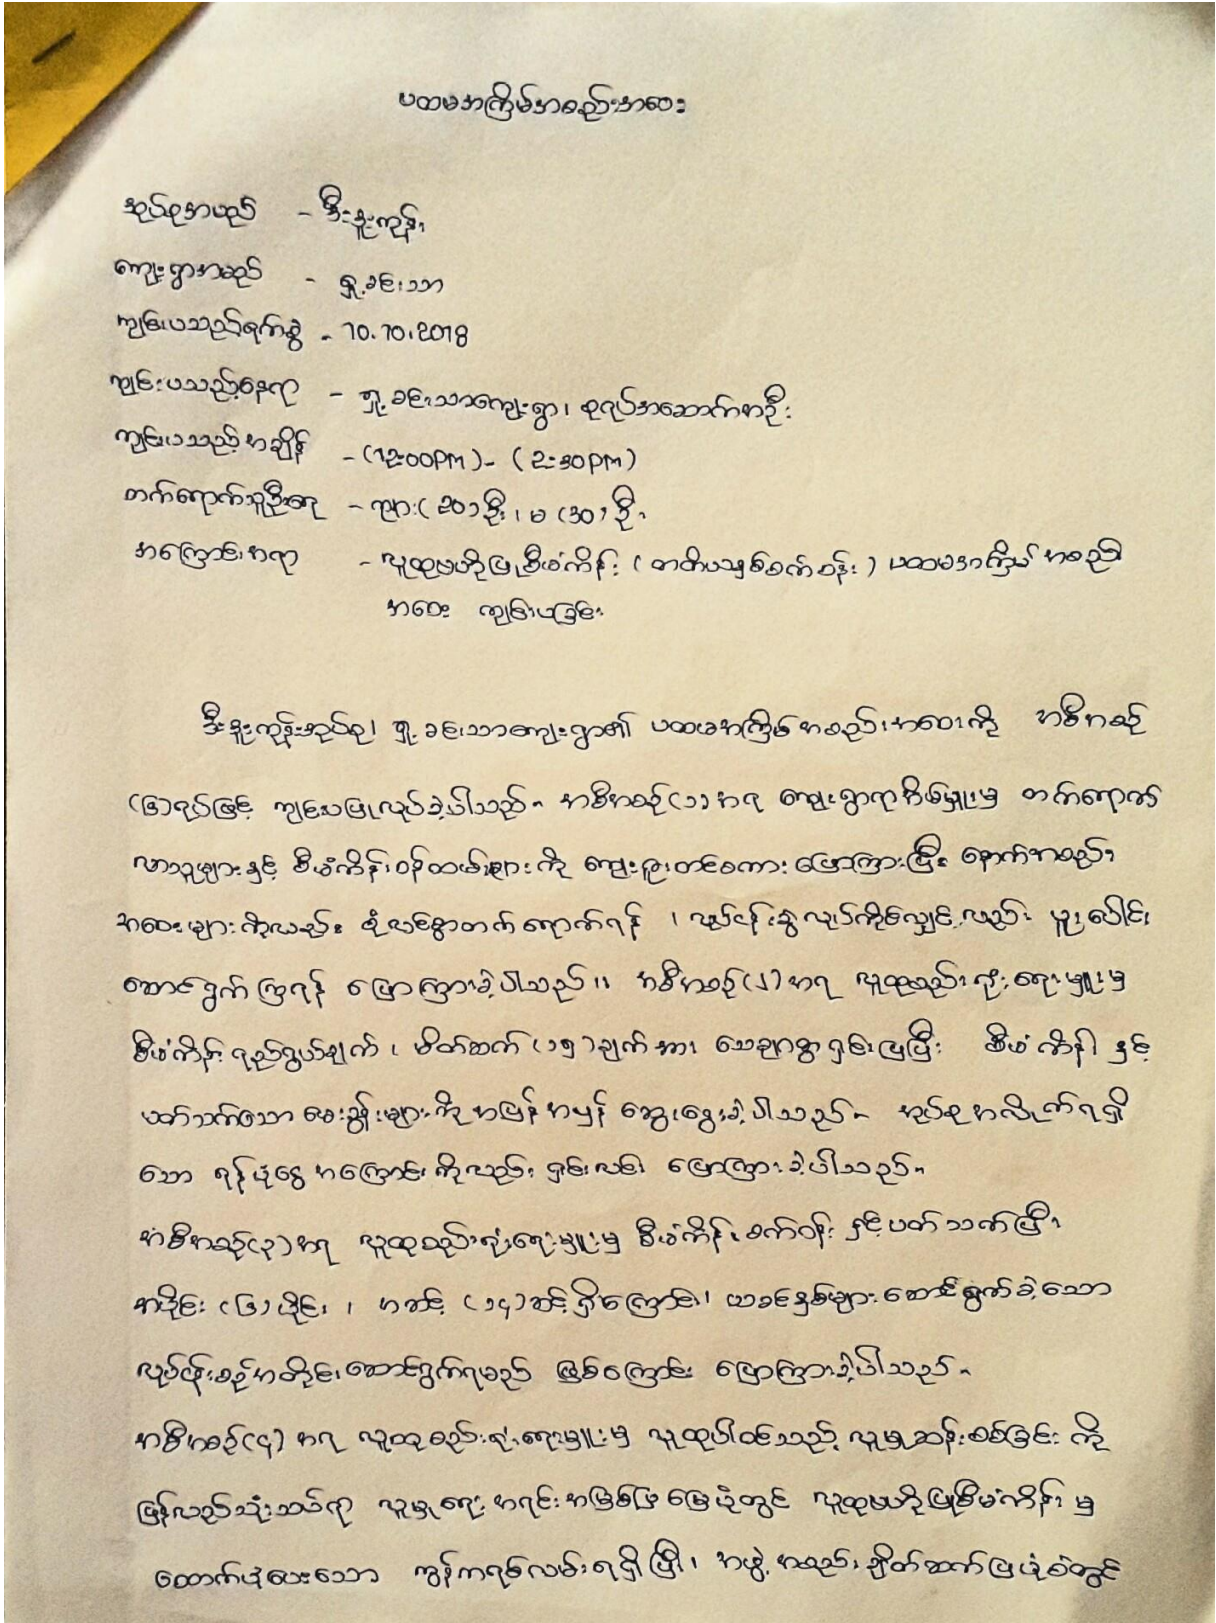 ပထမအကြိမ်အစည်းအဝေး
အုပ်စုအမည် - ဒီးဒူးကုန်း
ကျေးရွာအမည် - ရှူ့ခင်းသာ
ကျင်းပသည့်ရက်စွဲ - 10.10.2018
ကျင်းပသည့်နေရာ - ရှူ့ခင်းသာကျေးရွာ၊ စုရပ်အဆောက်အဦး
ကျင်းပသည့်အချိန် - (12:00PM) - (2:30PM)
တက်ရောက်သူဦးရေ - ကျား(20)ဦး၊ မ (30)ဦး
အကြောင်းအရာ - လူထုဗဟိုပြုစီမံကိန်း (တတိယနှစ်စက်ဝန်း) ပထမအကြိမ် အစည်း
အဝေး ကျင်းပခြင်း
ဒီးဒူးကုန်းအုပ်စု၊ ရှူ့ခင်းသာကျေးရွာ၏ ပထမအကြိမ်အစည်းအဝေးကို အစီအစဉ်
(၆)ရပ်ဖြင့် ကျင်းပပြုလုပ်ခဲ့ပါသည်။ အစီအစဉ်(၁)အရ ကျေးရွာရာအိမ်မှူးမှ တက်ရောက်
လာသူများနှင့် စီမံကိန်းဝန်ထမ်းများကို ကျေးဇူးတင်စကား ပြောကြားပြီး နောက်အစည်း
အဝေးများကိုလည်း စုံလင်စွာတက်ရောက်ရန် ၊ လုပ်ငန်းခွဲလုပ်ကိုင်လျှင်လည်း ပူးပေါင်း
ဆောင်ရွက်ကြရန် ပြောကြားခဲ့ပါသည်။ အစီအစဉ်(၂)အရ လူထုစည်းရုံးရေးမှူးမှ
စီမံကိန်းရည်ရွယ်ချက် ၊ မိတ်ဆက် (၁၅)ချက်အား သေချာစွာရှင်းပြပြီး စီမံကိန်းနှင့်
ပတ်သက်သော မေးခွန်းများကို အပြန်အမှန် ဆွေးနွေးခဲ့ပါသည်။ အုပ်စုအလိုက်ရရှိ
သော ရန်ပုံငွေအကြောင်းကိုလည်း ရှင်းလင်း ပြောကြားခဲ့ပါသည်။
အစီအစဉ်(၃)အရ လူထုစည်းရုံးရေးမှူးမှ စီမံကိန်းစက်ဝန်းနှင့်ပတ်သက်ပြီး
အပိုင်း (၆)ပိုင်း ၊ အဆင့် (၁၄)ဆင့်ရှိကြောင်း၊ ယခင်နှစ်များဆောင်ရွက်ခဲ့သော
လုပ်ငန်းစဉ်အတိုင်းဆောင်ရွက်ရမည် ဖြစ်ကြောင်း ပြောကြားခဲ့ပါသည်။
အစီအစဉ်(၄)အရ လူထုစည်းရုံးရေးမှူးမှ လူထုပါဝင်သည့် လူမှုဆန်းစစ်ခြင်းကို
ပြန်လည်သုံးသပ်ရာ လူမှုရေးအရင်းအမြစ်ပြမြေပုံတွင် လူထုဗဟိုပြုစီမံကိန်းမှ
ထောက်ပံ့ပေးသော ကွန်ကရစ်လမ်းရရှိပြီး၊ အဖွဲ့အစည်းချိတ်ဆက်ပြပုံစံတွင်